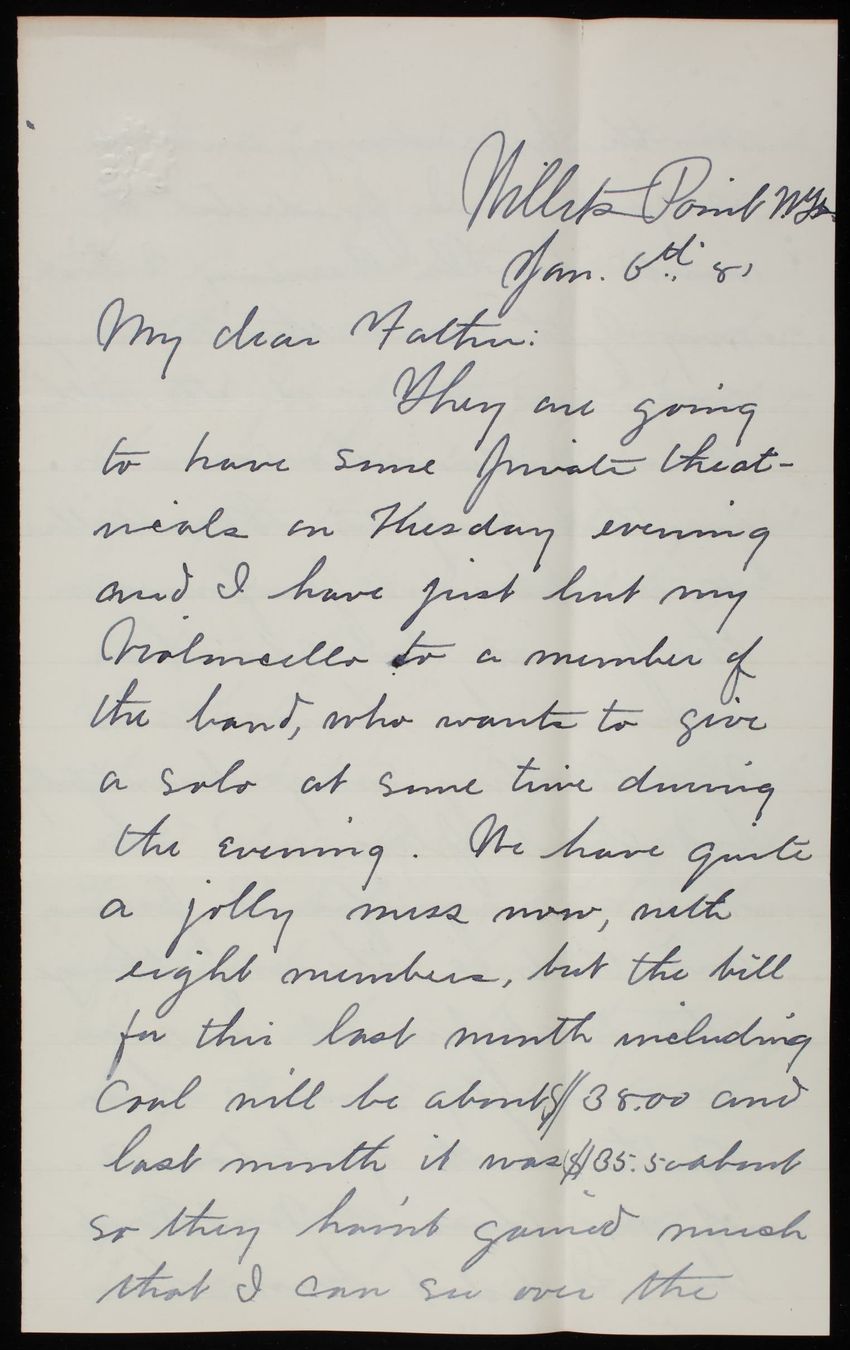 Willets Point N.Y.
Jan. 6th. 81
My dear Father:
They are going
to have some private theat-
ricals on Tuesday evening
and I have just lent my
Violoncello to a member of
the band, who wants to give
a solo at some time during
the evening. We have quite
a jolly mess now, with
eight members, but the bill
for this last month including
Coal will be about $38.00 and
last month it was $35.50 about
so they hain't gained much
that I can see over the